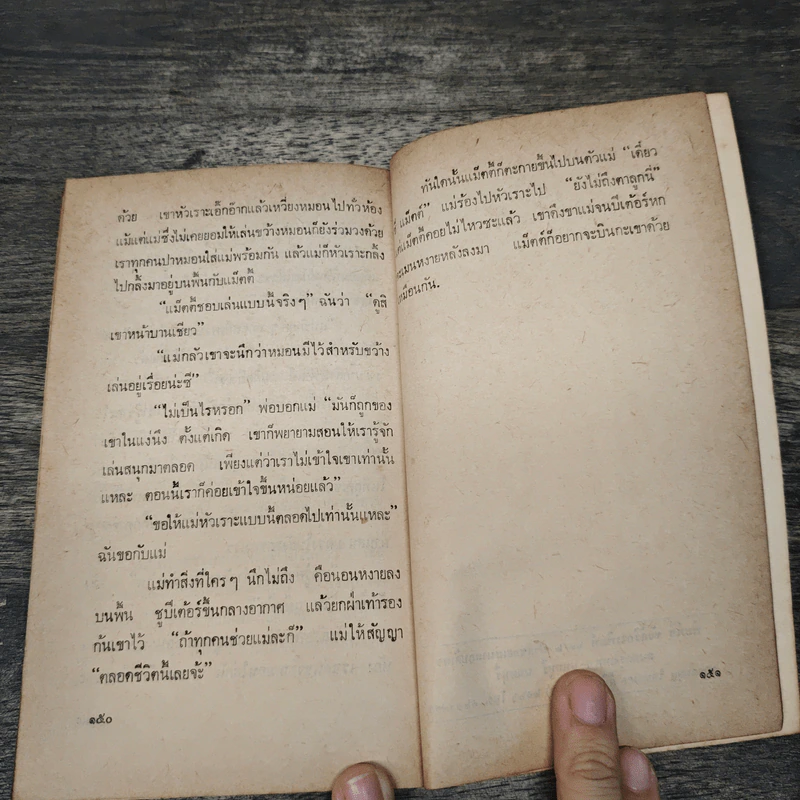 ด้วย เขาหัวเราะเอิ๊กอ๊ากแล้วเหวี่ยงหมอนไปทั่วห้อง
แม้แต่แม่ซึ่งไม่เคยยอมให้เล่นขว้างหมอนก็ยังร่วมวงด้วย
เราทุกคนปาหมอนใส่แม่พร้อมกัน แล้วแม่ก็หัวเราะกลิ้ง
ไปกลิ้งมาอยู่บนพื้นกับแม็ตตี้
“แม็ตตี้ชอบเล่นแบบนี้จริงๆ” ฉันว่า “ดูสิ
เขาหน้าบานเชียว”
“แม่กลัวเขาจะนึกว่าหมอนมีไว้สำหรับขว้าง
เล่นอยู่เรื่อยน่ะซี”
“ไม่เป็นไรหรอก” พ่อบอกแม่ “มันก็ถูกของ
เขาในแง่นึง ตั้งแต่เกิด เขาก็พยายามสอนให้เรารู้จัก
เล่นสนุกมาตลอด เพียงแต่ว่าเราไม่เข้าใจเขาเท่านั้น
แหละ ตอนนี้เราก็ค่อยเข้าใจขึ้นหน่อยแล้ว”
“ขอให้แม่หัวเราะแบบนี้ตลอดไปเท่านั้นแหละ”
ฉันขอกับแม่
แม่ทำสิ่งที่ใครๆ นึกไม่ถึง คือนอนหงายลง
บนพื้น ชูปีเตอร์ขึ้นกลางอากาศ แล้วยกฝ่าเท้ารอง
ก้นเขาไว้ “ถ้าทุกคนช่วยแม่ละก็” แม่ให้สัญญา
“ตลอดชีวิตนี้เลยจ้ะ”
๑๕๐
ทันใดนั้นแม็ตตี้ก็ตะกายขึ้นไปบนตัวแม่ “เดี๋ยว
แม็ตตี้” แม่ร้องไปหัวเราะไป “ยังไม่ถึงตาลูกนี่”
แม็ตตี้คอยไม่ไหวซะแล้ว เขาดึงขาแม่จนปีเตอร์หก
คะเมนหงายหลังลงมา แม็ตตี้ก็อยากจะบินกะเขาด้วย
เหมือนกัน.
๑๕๑